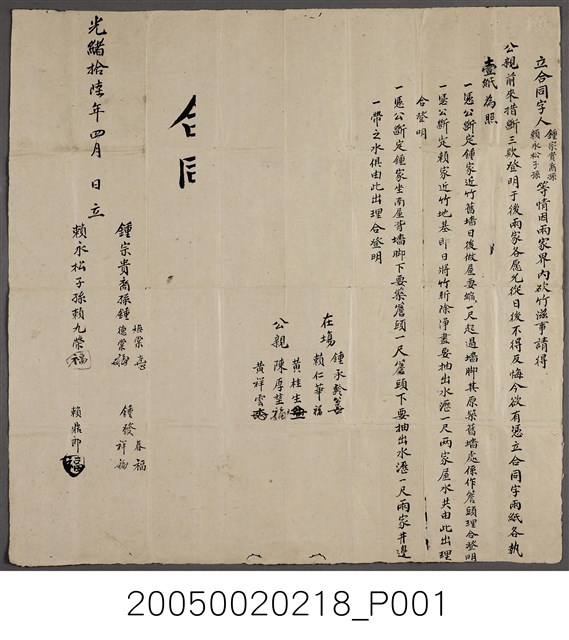 立合同字人鍾宗貴裔孫賴永松子孫等情因兩家界內砍竹滋事請得
公親前來措斷三欵登明于後兩家各愿允從日後不得反悔今欲有憑立合同字兩紙各執
壹紙為照
一憑公斷定鍾家近竹舊墻日後做屋要縮一尺起過墻脚其原梁舊墻處係作簷頭理合登明
一憑公斷定賴家近竹地基即日將竹斬除淨盡要抽出水瀝一尺兩家屋水共由此出理
合登明
一憑公斷定鍾家坐南屋背墻脚下要築簷頭一尺簷頭下要抽出水瀝一尺兩家井邊
一帶之水俱由此出理合登明
在塲 鍾承齡 賴仁華福
公親 黃桂生 陳厚 黃祥雲
合同
光緒拾陸年四月 日立
鍾宗貴裔孫鍾 德榮 鍾發祥 春福
賴永松子孫賴九榮福 賴鼎郎福
20050020218_P001